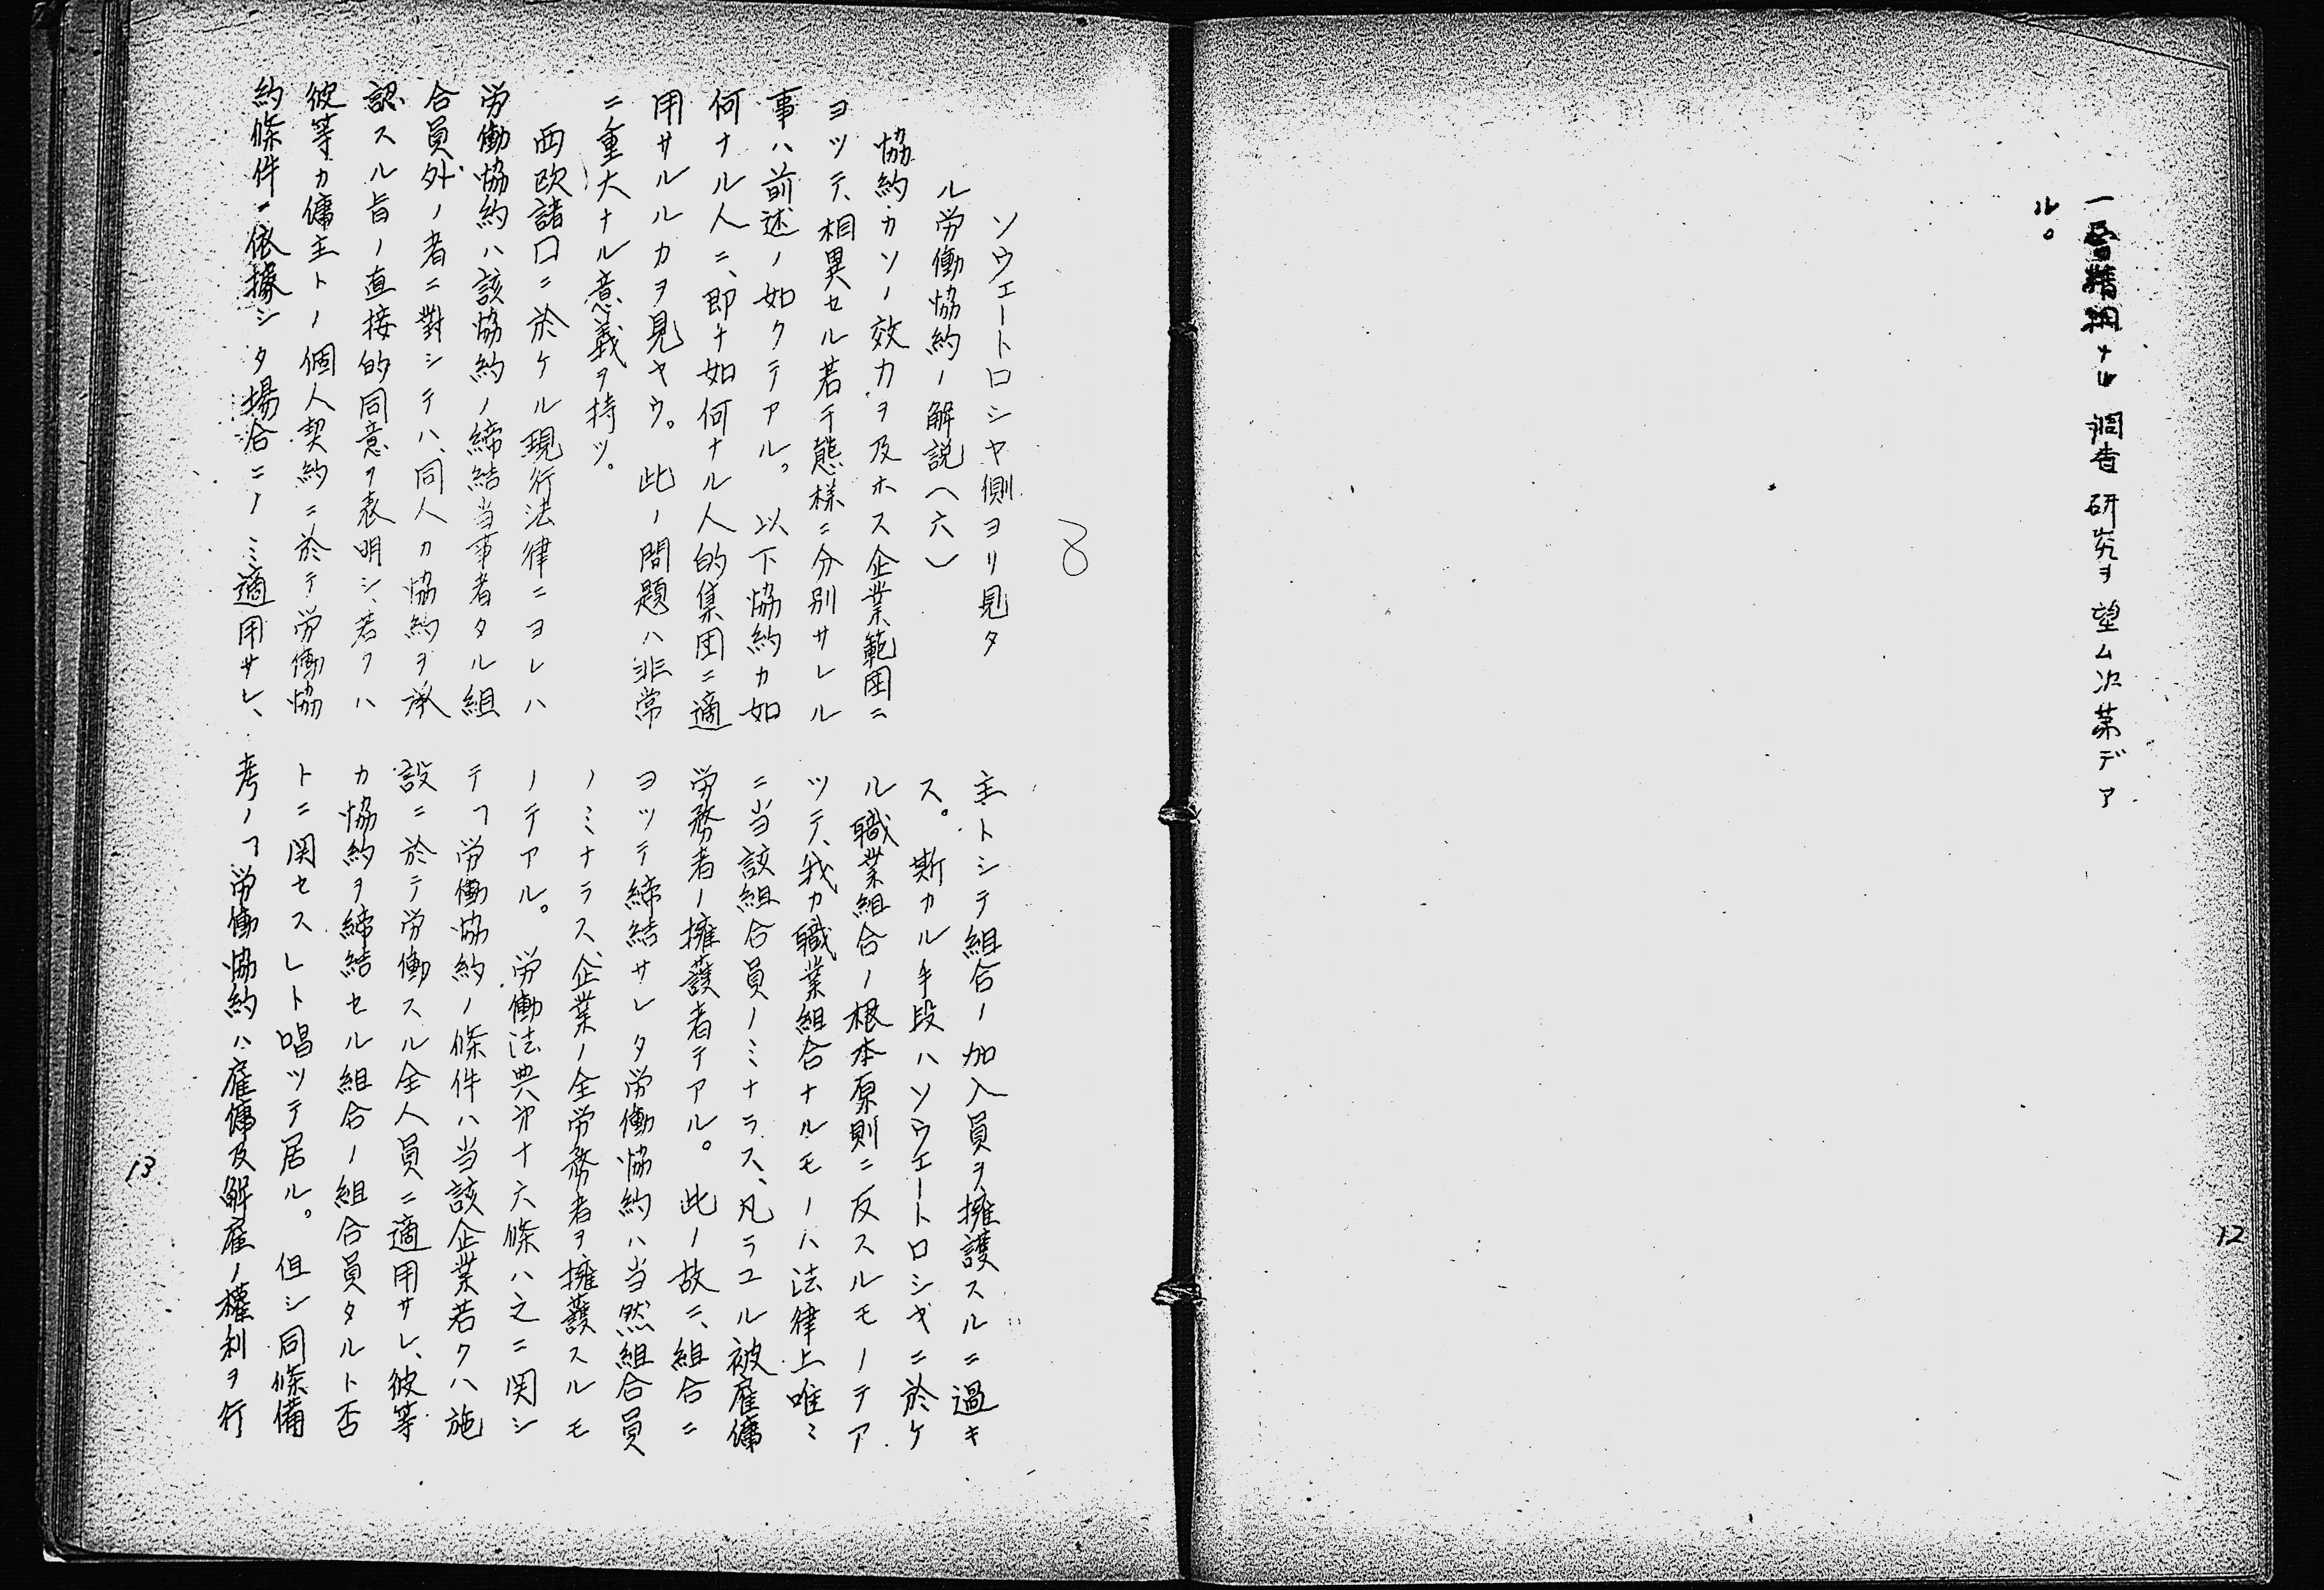 一層精細ナル調査研究ヲ望ム次第デア
ル。
12
8
ソウエートロシヤ側ヨリ見タ
ル労働協約ノ解説（六）
協約カソノ效力ヲ及ホス企業範囲ニ
ヨツテ、相異セル若干態様ニ分別サレル
事ハ前述ノ如クテアル。以下協約カ如
何ナル人ニ、即チ如何ナル人的集団ニ適
用サルルカヲ見ヤウ。此ノ問題ハ非常
ニ重大ナル意義ヲ持ツ。
西欧諸口ニ於ケル現行法律ニヨレハ
労働協約ハ該協約ノ締結当事者タル組
合員外ノ者ニ對シテハ、同人カ協約ヲ承
認スル旨ノ直接的同意ヲ表明シ、若クハ
彼等カ傭主トノ個人契約ニ於テ労働協
約條件ニ依據シタ場合ニノミ適用サレ、
主トシテ組合ノ加入員ヲ擁護スルニ過キ
ス。斯カル手段ハソウエートロシヤニ於ケ
ル職業組合ノ根本原則ニ反スルモノテア
ツテ、我カ職業組合ナルモノハ法律上唯ミ
ニ当該組合員ノミナラス、凡ラユル被雇傭
労務者ノ擁護者テアル。此ノ故ニ、組合ニ
ヨツテ締結サレタ労働協約ハ当然組合員
ノミナラス、企業ノ全労務者ヲ擁護スルモ
ノテアル。労働法典第十六條ハ之ニ関シ
テ「労働協約ノ條件ハ当該企業若クハ施
設ニ於テ労働スル全人員ニ適用サレ、彼等
カ協約ヲ締結セル組合ノ組合員タルト否
トニ関セスレト唱ツテ居ル。但シ同條備
考ノ「労働協約ハ雇傭及解雇ノ權利ヲ行
13